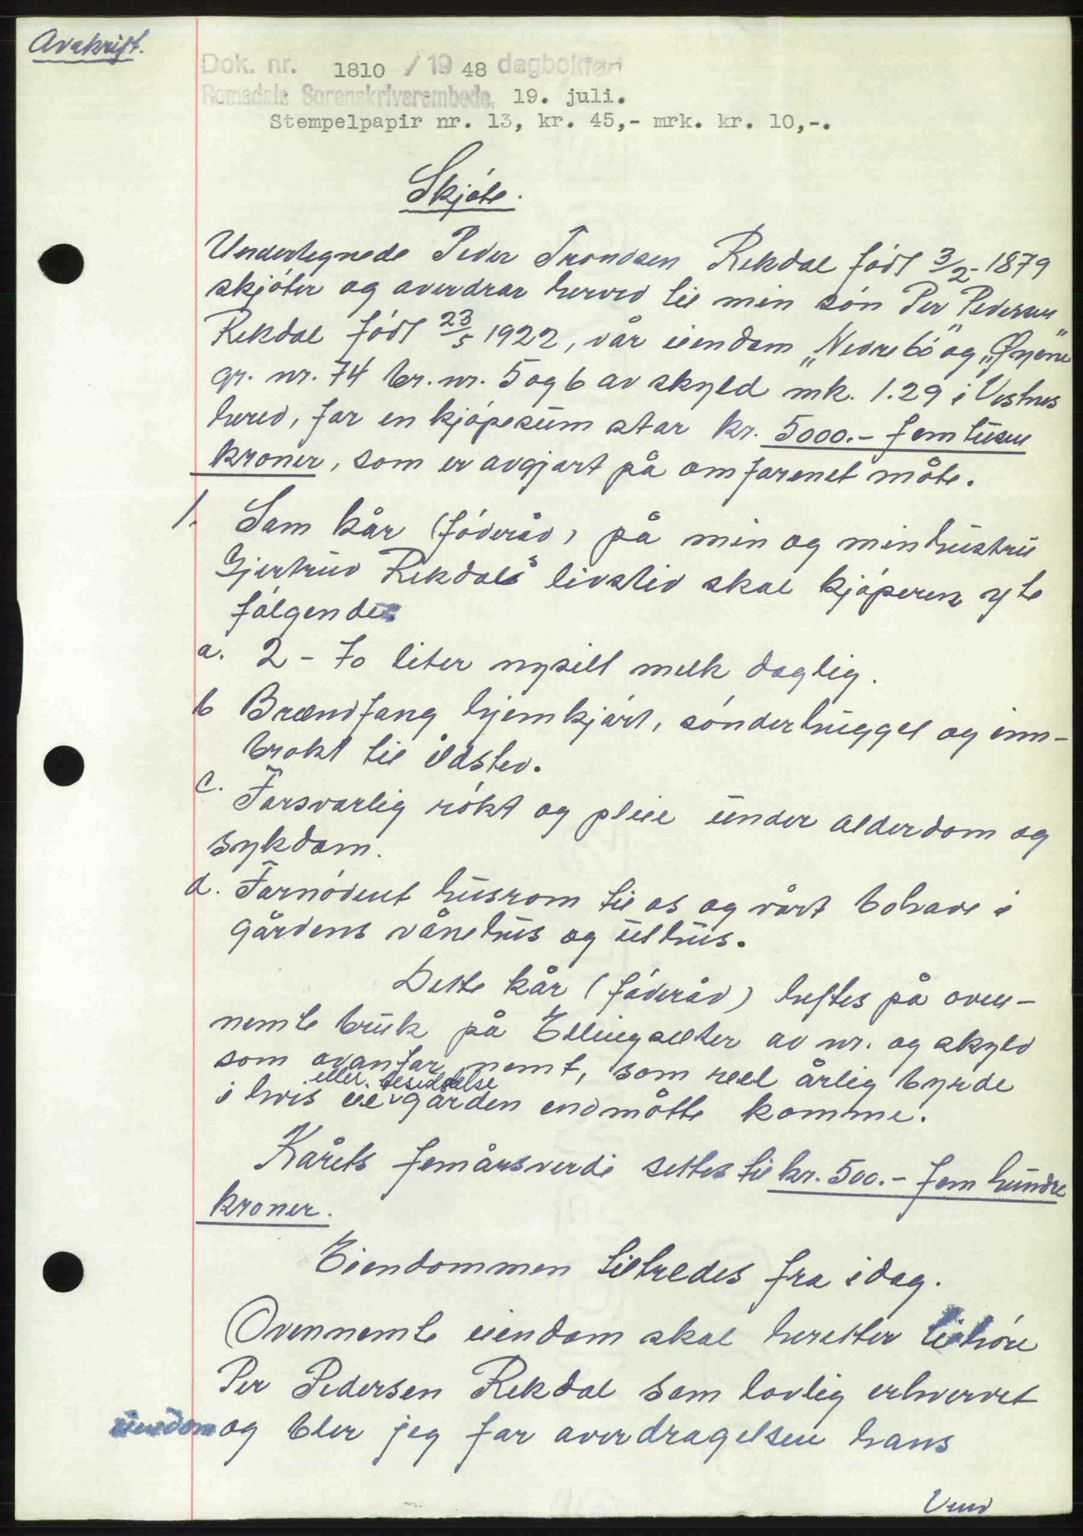 Avskrift.
Dok. nr. 1810 / 19 48 dagbokført
Romsdals Sorenskriverembede, 19. juli.
Stempelpapir nr. 13, kr. 45,- mrk. kr. 10,-.
Skjøte.
Undertegnede Peder Trondsen Rekdal født 3/2-1879
skjøter og overdrar herved til min søn Per Pedersen
Rekdal født 23/5 1922, vår eiendom "Nedrebø" og "Øyene"
gr. nr. 74 br. nr. 5 og 6 av skyld mk. 1.29 i Vestnes
hered, for en kjøpesum stor kr. 5000.- femtusen
kroner, som er avgjort på omforenet måte.
1. Som kår (føderåd) på min og min hustru
Gjertrud Rekdals livstid skal kjøperen yte
følgende:
a. 2 - to liter nysilt melk daglig.
b Brændfang hjemkjørt, sønderhugget og inn-
brakt til ildsted.
c. Forsvarlig røkt og pleie under alderdom og
sykdom.
d. Fornødent husrom til os og vårt bohave i
gårdens vånehus og uthus.
Dette kår (føderåd) heftes på oven-
nemte bruk på Ellingsæter av nr. og skyld
som ovanfor nemt, som reel årlig byrde
eller besiddelse
i hvis eie gården endmåtte komme.
Kårets femårsverdi settes til kr. 500.- fem hundre
kroner.
Eiendommen tiltredes fra idag.
Ovennemte eiendom skal herefter tilhøre
Per Pedersen Rekdal som lovlig erhvervet
eiendom og bler jeg for overdragelsen hans